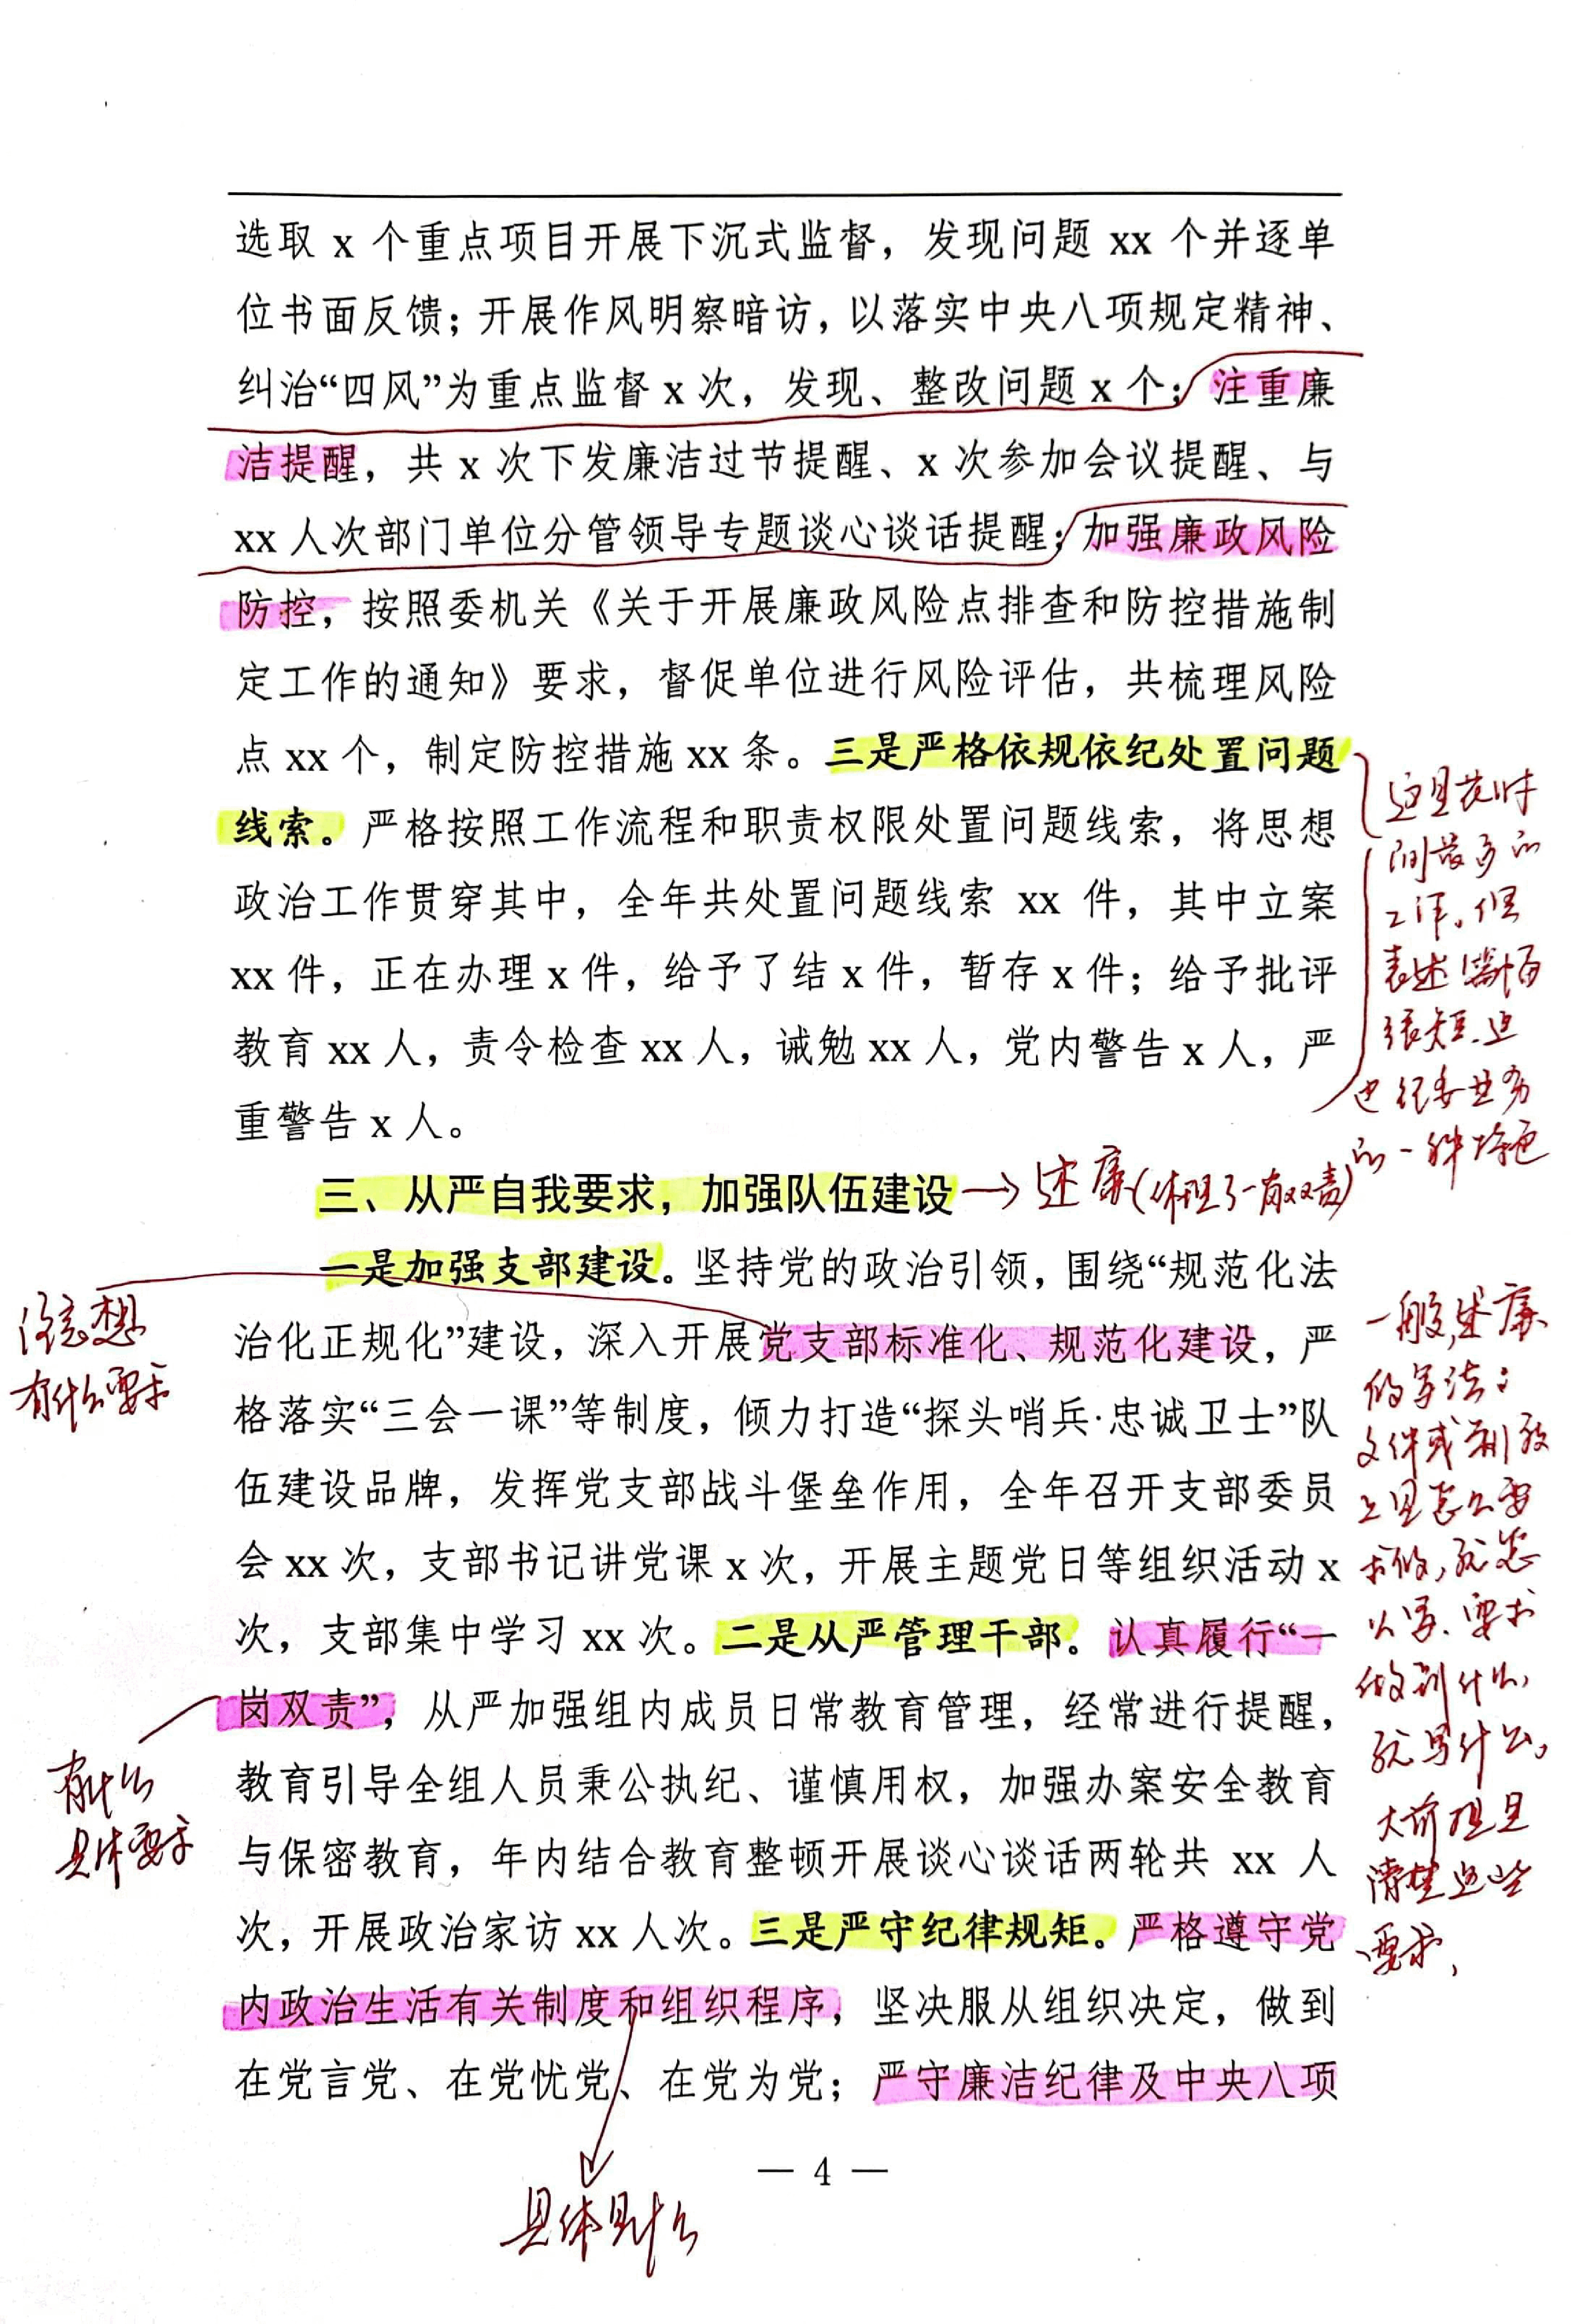 选取 x 个重点项目开展下沉式监督，发现问题 xx 个并逐单
位书面反馈；开展作风明察暗访，以落实中央八项规定精神、
纠治“四风”为重点监督 x 次，发现、整改问题 x 个；注重廉
洁提醒，共 x 次下发廉洁过节提醒、x 次参加会议提醒、与
xx 人次部门单位分管领导专题谈心谈话提醒；加强廉政风险
防控，按照委机关《关于开展廉政风险点排查和防控措施制
定工作的通知》要求，督促单位进行风险评估，共梳理风险
点 xx 个，制定防控措施 xx 条。三是严格依规依纪处置问题
线索。严格按照工作流程和职责权限处置问题线索，将思想
政治工作贯穿其中，全年共处置问题线索 xx 件，其中立案
xx 件，正在办理 x 件，给予了结 x 件，暂存 x 件；给予批评
教育 xx 人，责令检查 xx 人，诫勉 xx 人，党内警告 x 人，严
重警告 x 人。
这是花时
间最多的
工作。但
表述
很短.这
也纪委业务
的一种特色
三、从严自我要求，加强队伍建设
述廉(体现了一岗双责)
一是加强支部建设。坚持党的政治引领，围绕“规范化法
治化正规化”建设，深入开展党支部标准化、规范化建设，严
格落实“三会一课”等制度，倾力打造“探头哨兵·忠诚卫士”队
伍建设品牌，发挥党支部战斗堡垒作用，全年召开支部委员
会 xx 次，支部书记讲党课 x 次，开展主题党日等组织活动 x
次，支部集中学习 xx 次。二是从严管理干部。认真履行“一
岗双责”，从严加强组内成员日常教育管理，经常进行提醒，
教育引导全组人员秉公执纪、谨慎用权，加强办案安全教育
与保密教育，年内结合教育整顿开展谈心谈话两轮共 xx 人
次，开展政治家访 xx 人次。三是严守纪律规矩。严格遵守党
内政治生活有关制度和组织程序，坚决服从组织决定，做到
在党言党、在党忧党、在党为党；严守廉洁纪律及中央八项
想
有什么要求
有什么
具体要求
一般,述廉
的写法：
文件或制度
上是怎么要
求做,就怎
么写、要求
做到什么,
就写什么。
大前提是
清楚这些
要求,
具体是什么
— 4 —